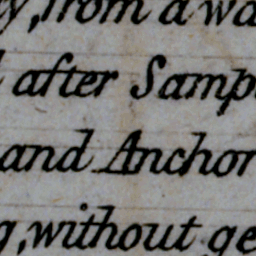 y, from a wa
after Samp
and Anchor
g, without ge